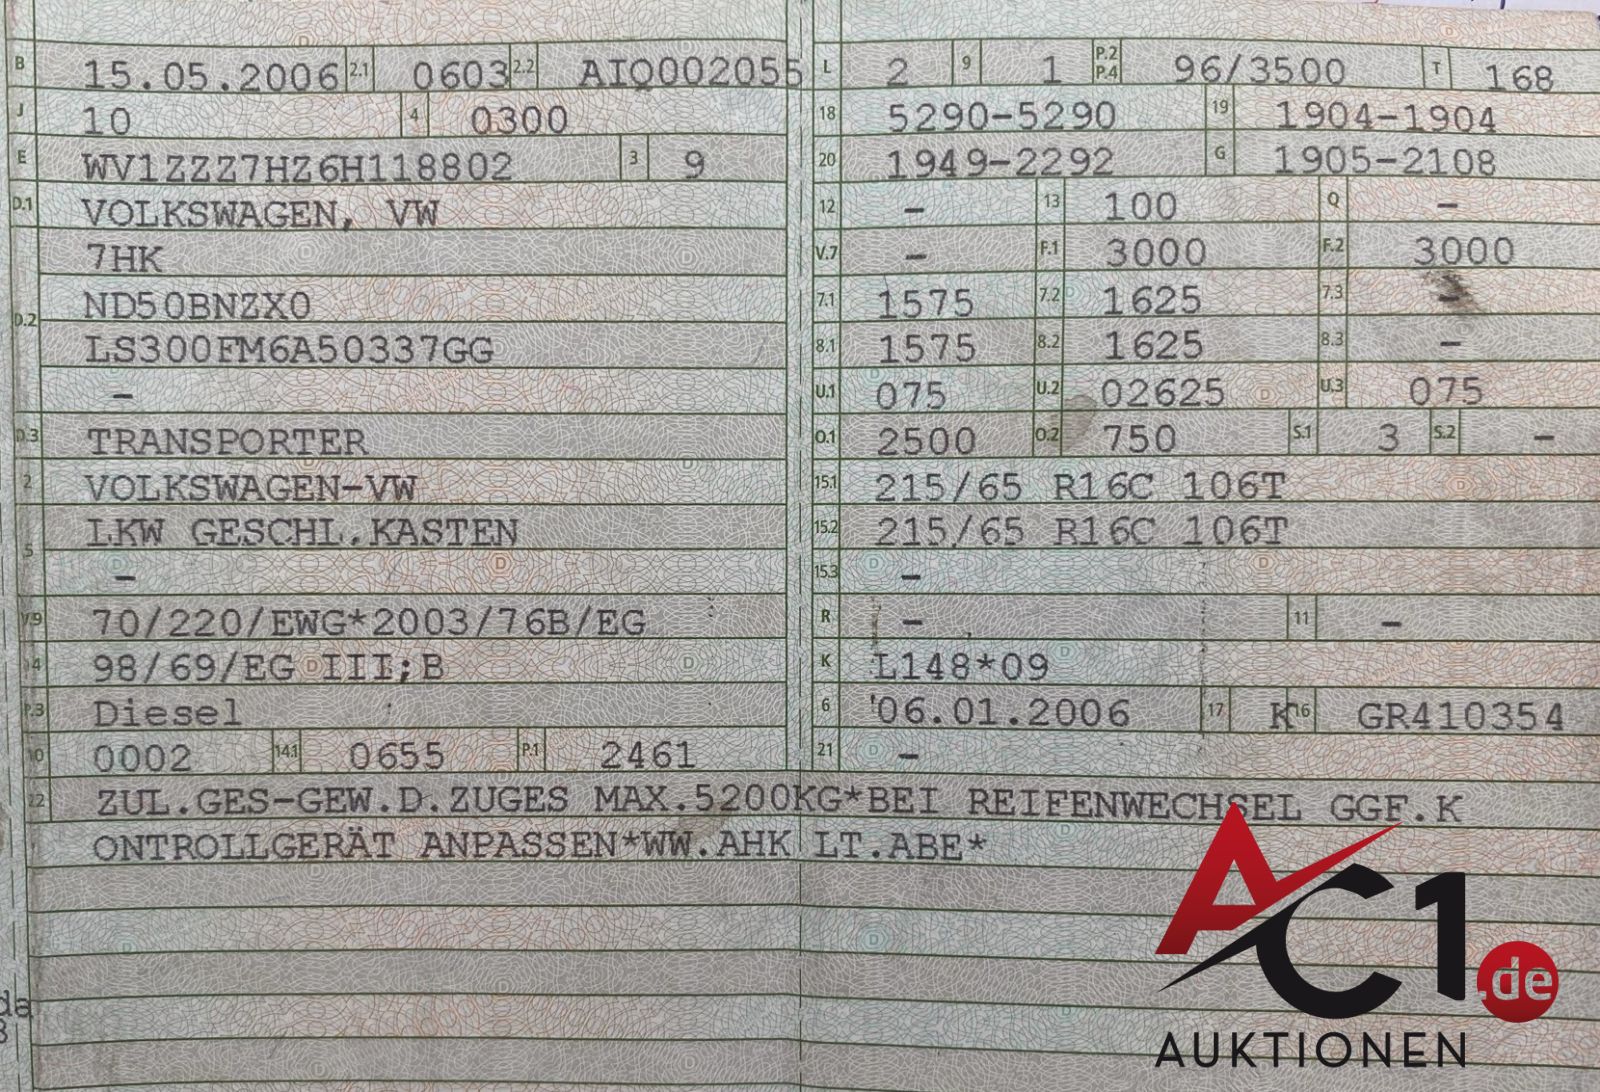 B 15.05.2006 2.1 0603 2.2 AIQ002055
J 10 4 0300
E WV1ZZZ7HZ6H118802 3 9
D.1 VOLKSWAGEN, VW
7HK
D.2 ND50BNZX0
LS300FM6A50337GG
–
D.3 TRANSPORTER
2 VOLKSWAGEN-VW
5 LKW GESCHL.KASTEN
–
V.9 70/220/EWG*2003/76B/EG
14 98/69/EG III;B
P.3 Diesel
10 0002 14.1 0655 P.1 2461
L 2 9 1 P.2 P.4 96/3500 T 168
18 5290-5290 19 1904-1904
20 1949-2292 G 1905-2108
12 – 13 100 Q –
V.7 – F.1 3000 F.2 3000
7.1 1575 7.2 1625 7.3 –
8.1 1575 8.2 1625 8.3 –
U.1 075 U.2 02625 U.3 075
O.1 2500 O.2 750 S.1 3 S.2 –
15.1 215/65 R16C 106T
15.2 215/65 R16C 106T
15.3 –
R – 11 –
K L148*09
6 06.01.2006 17 K 16 GR410354
21 –
22 ZUL.GES-GEW.D.ZUGES MAX.5200KG*BEI REIFENWECHSEL GGF.K
ONTROLLGERÄT ANPASSEN*WW.AHK LT.ABE*
da
AC1.de
AUKTIONEN